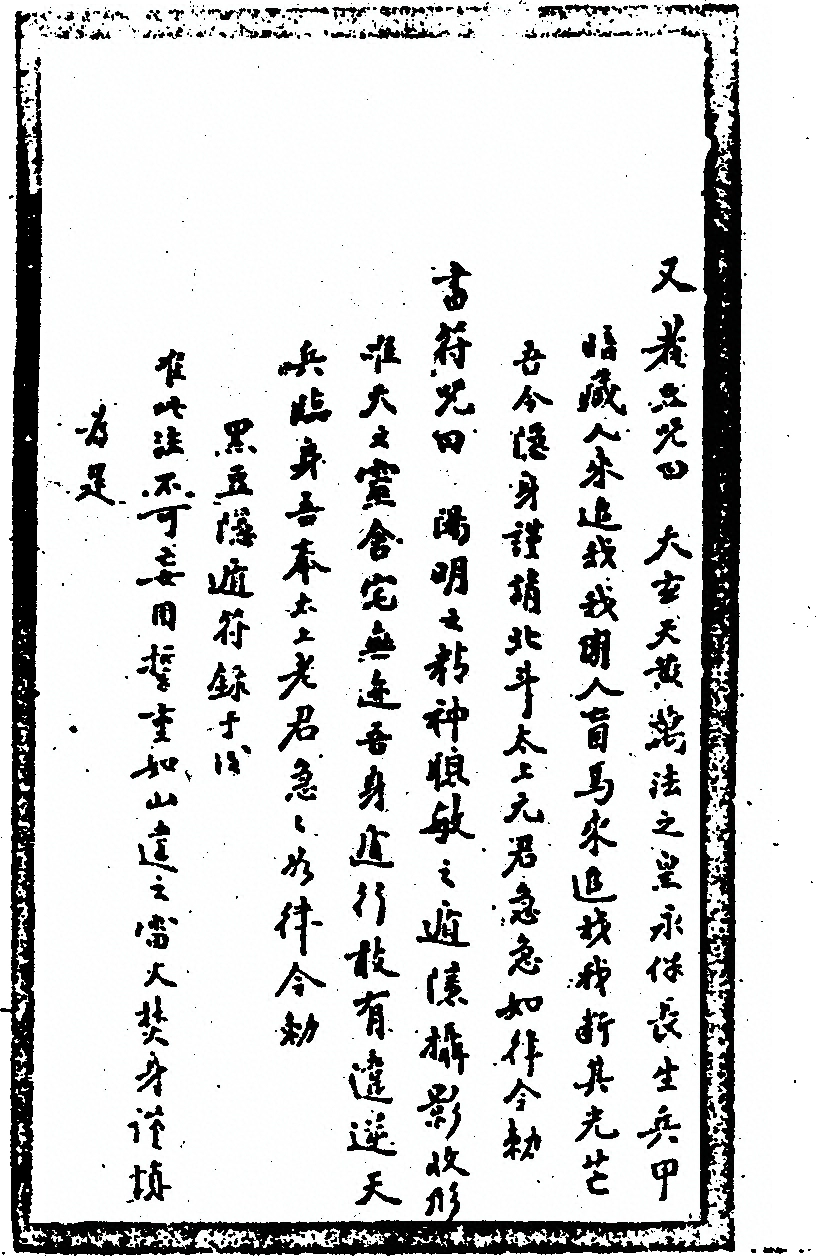 又 養豆咒曰 大玄天黃萬法之皇永保長生兵甲
暗藏人來追我我閉人盲馬來追我我折其光芒
吾今隱身謹請北斗太上元君急急如律令勅
書符咒曰 陽明之精神聰敏之遁隱攝影收形
唯天之靈舍宅無迹吾身遁行敢有違逆天
兵臨身吾奉太上老君急々如律令勅
黑豆隱遁符錄于後
此法不可妄用誓重如山違之雷火焚身謹慎
為是